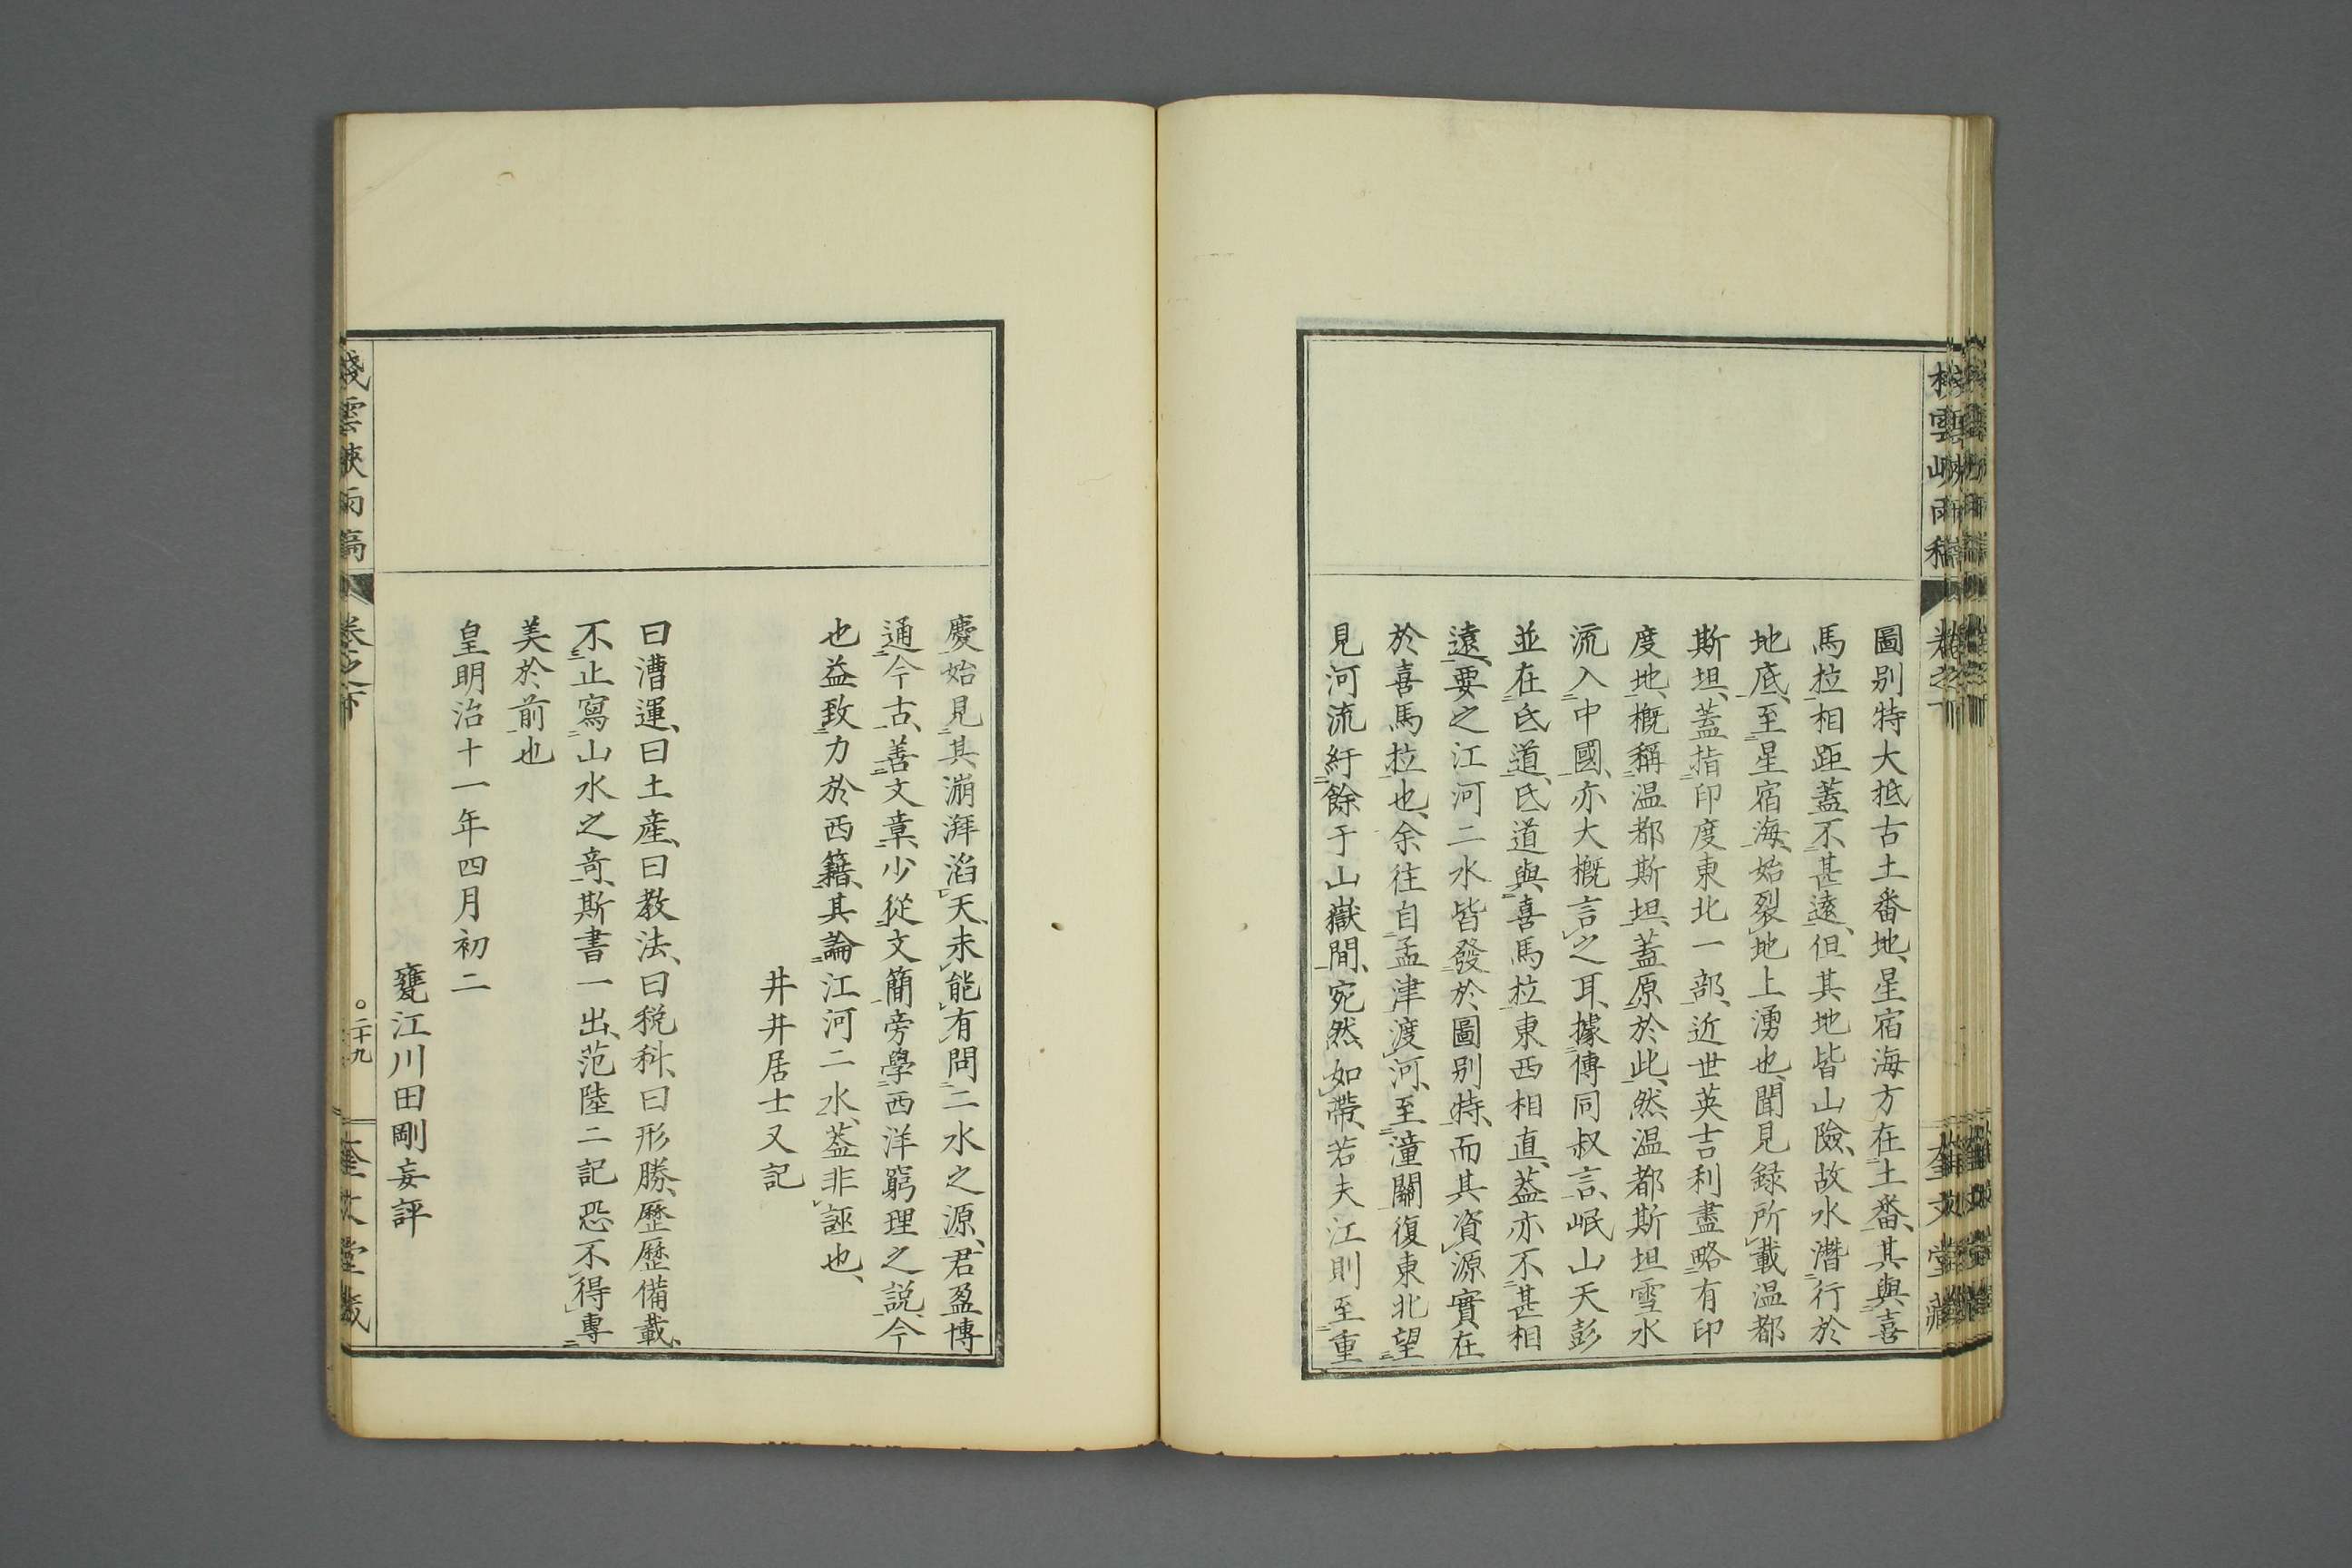 圖別特大抵古土番地、星宿海方在土番、其與喜
馬拉相距蓋不甚遠、但其地皆山險、故水潛行於
地底、至星宿海、始裂地上湧也、聞見録所載温都
斯坦、蓋指印度東北一部、近世英吉利盡略有印
度地、概稱温都斯坦、蓋原於此、然温都斯坦雪水
流入中國、亦大概言之耳、據傳同叔言、岷山天彭
並在氐道、氐道與喜馬拉東西相直、葢亦不甚相
遠、要之江河二水皆發於圖別特、而其資源實在
於喜馬拉也、余往自孟津渡河、至潼關復東北望
見河流紆餘于山嶽間、宛然如帶、若夫江則至重
慶始見其漰湃滔天、未能有問二水之源、君盈博
通今古、善文章、少從文簡旁學西洋窮理之説、今
也益致力於西籍、其論江河二水、葢非誣也、
井井居士又記
曰漕運、曰土産、曰教法、曰税科、曰形勝、歷歷備載、
不止寫山水之奇、斯書一出、范陸二記恐不得專
美於前也
皇明治十一年四月初二
甕江川田剛妄評
棧雲峽雨稿
卷之下
二十九
奎文堂藏